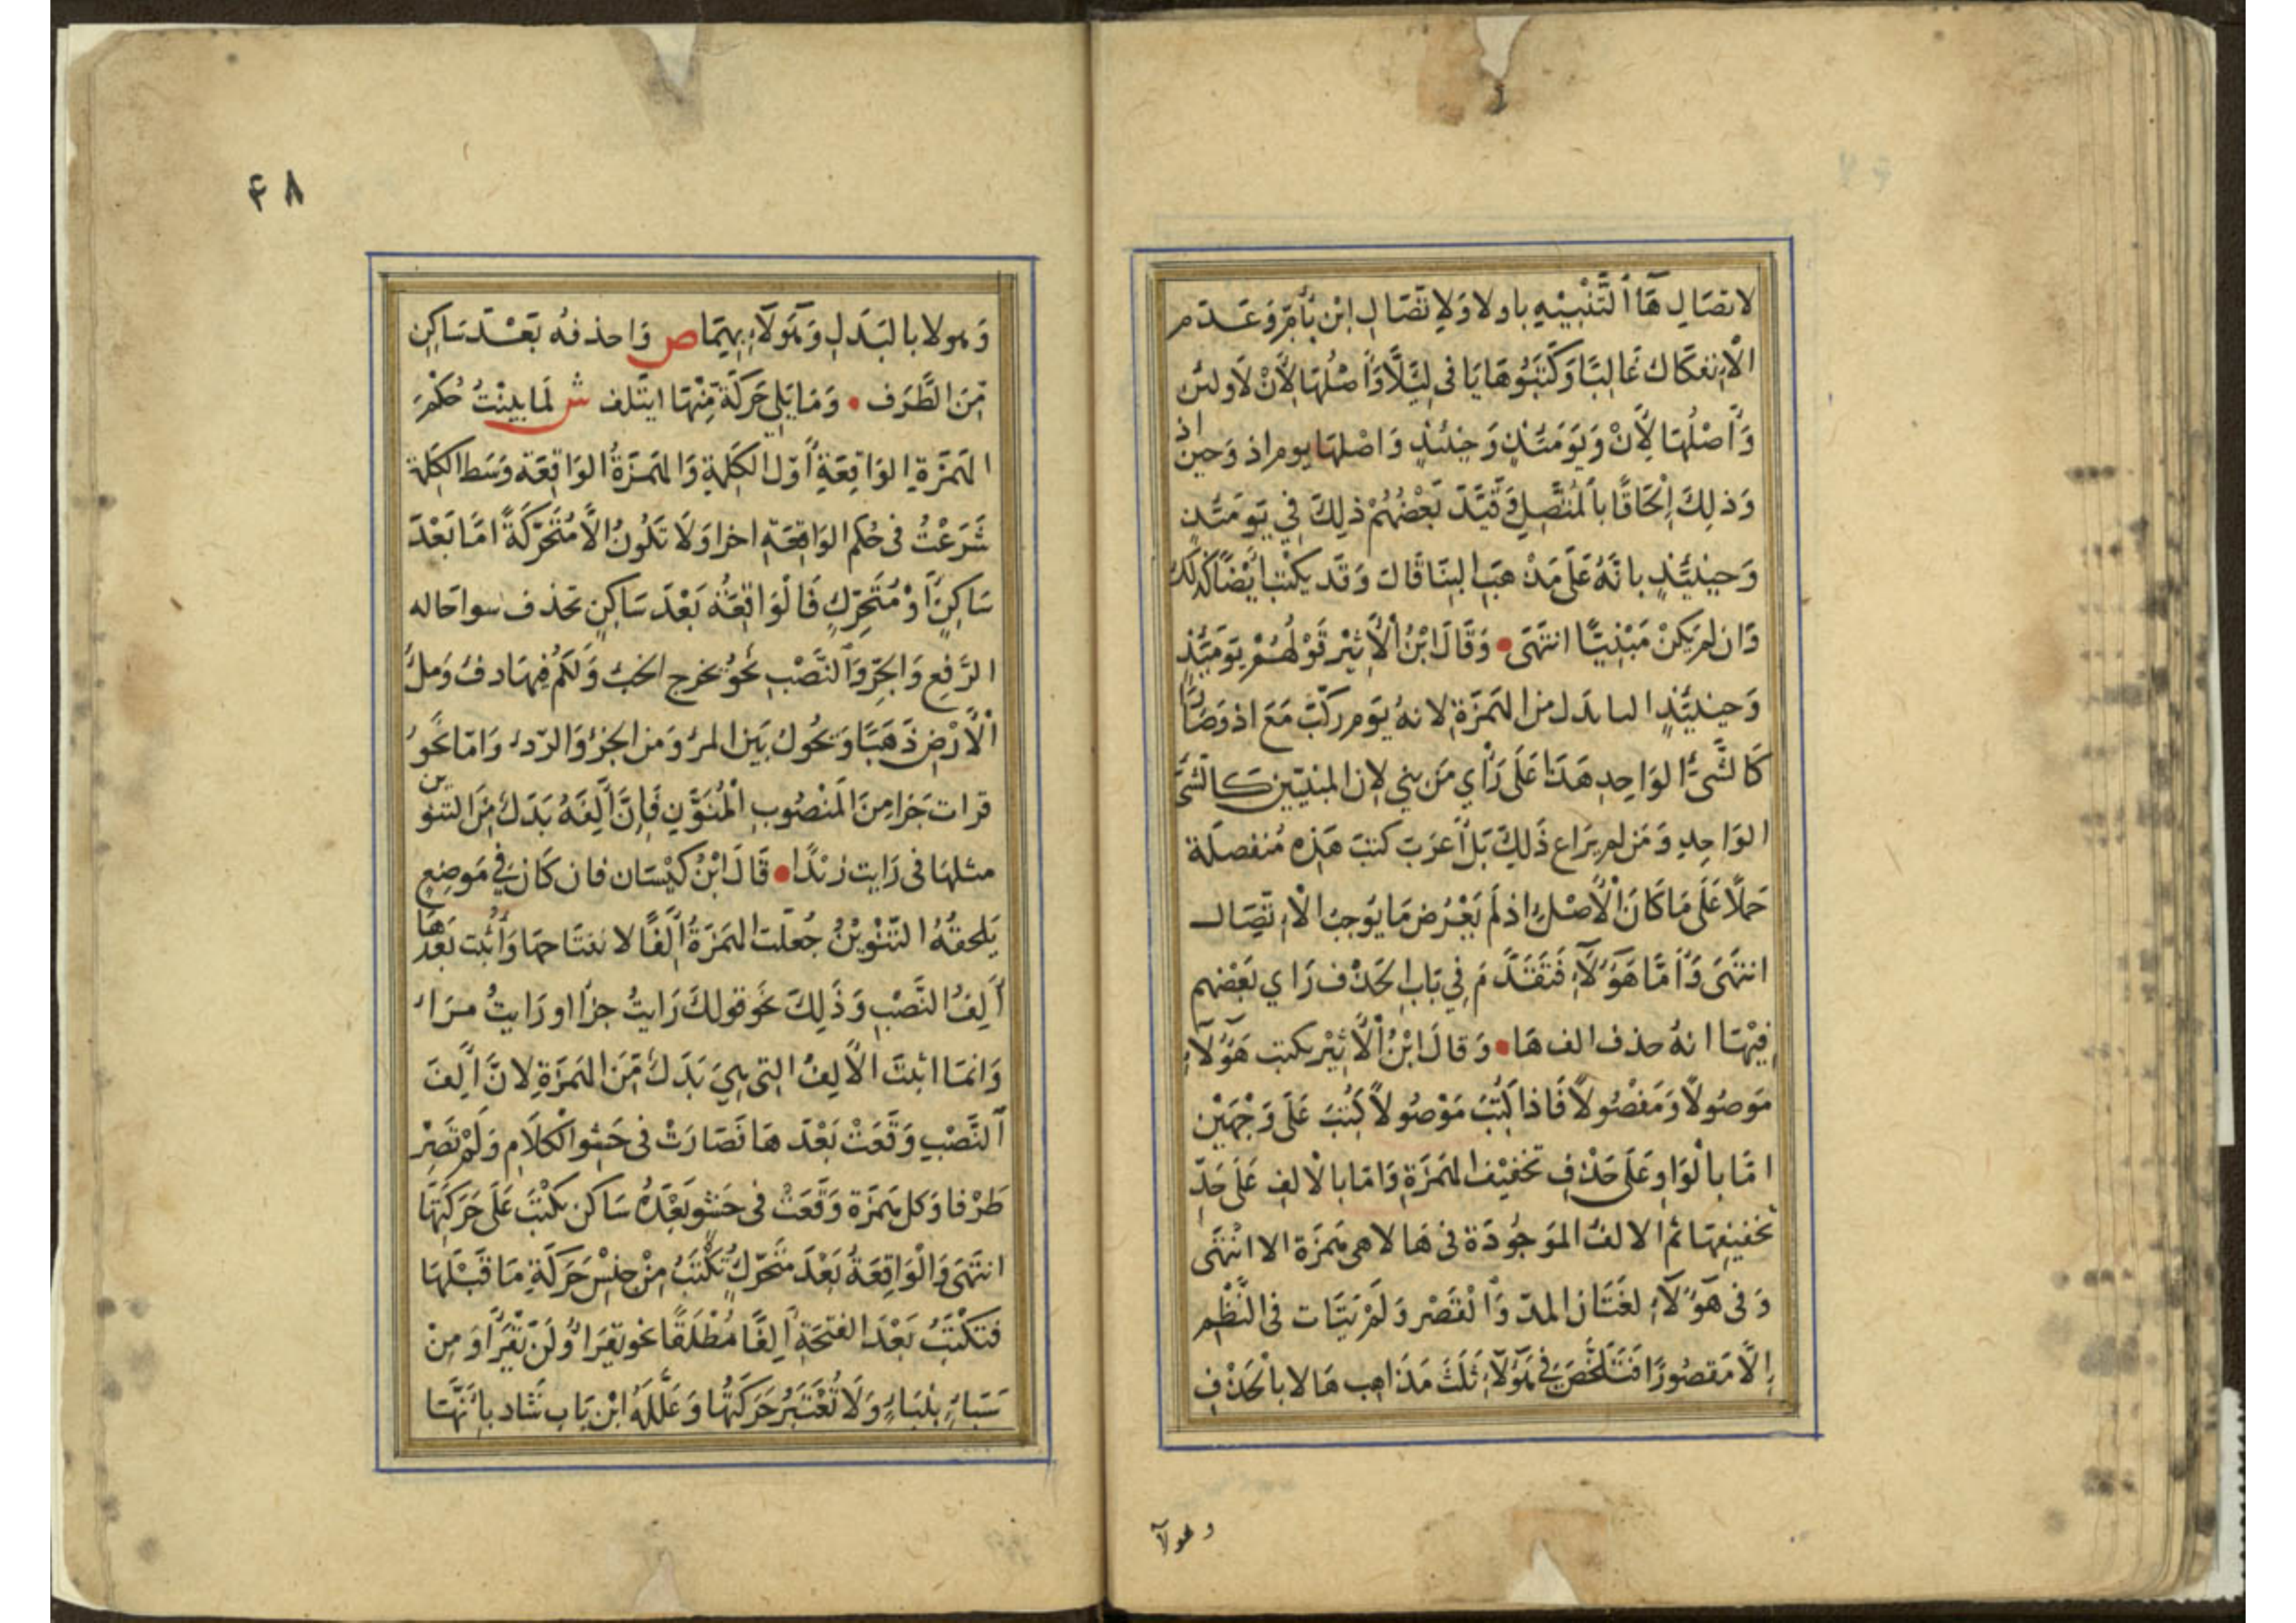 لاتصَالِ هَاۤ التَّنْبِيْهِ باولا وَلاِتّصَالِ ابْن بأمّ وَعَدَم
الْاِنفكَاك غَالِبًا وَكَتَبُوهَا يَا فى لِئَلَّا وَأَصْلُهَا لِأَنْ لَا وَلئن
وَأَصْلُهَا لَإِنْ وَيَوْمَئذٍ وَحِينَئذٍ وَاصْلهَا يوم اذ وَحين اذ
وَذلِكَ اِلْحَاقًا بالْمُتَّصِلِ وَقَيَّدَ بَعْضُهُمْ ذلِكَ فِي يَوْمَئِذٍ
وَحِينَئِذٍ بانَّهُ عَلَى مَذْهَبِ البِنَا قَالَ وَقَد يكْتب أَيْضًا كَذلكَ
وَان لم يَكنْ مَبْنِيًّا انتَهَى • وَقَالَ ابْنُ الْأَثِيْرِ قَوْلُهُمْ يَوْمَئِذٍ
وَحِينَئِذٍ اليا بَدَل من الهَمْزَةِ لانهُ يَوْم ركّبَ مَعَ اذ وَصَارَا
كَالشَّئِ الوَاحِدِ هَذَا عَلَى رَأْيِ مَن بني لان المبنيّين كالشئ
الوَاحِدِ وَمَن لم يرَاعِ ذَلِكَ بَلْ أَعرَبَ كتبَ هَذِه مُنفصلَة
حَمْلًا عَلَى مَا كَانَ الْأَصْلُ اذ لَم يَعْرُض مَا يُوجبُ الْاِتّصَال
انتَهَى وَأَمَّا هَؤُلَآءِ فَتَقَدَّمَ فِي بَابِ الحَذْف رَاي بَعْضهم
فِيْهَا انهُ حذف الف هَا • وَقالَ ابْنُ الْأَثِيْر يكتب هَؤُلَآءِ
مَوصُولًا وَمَفْصُولًا فَاذا كُتبَ مَوْصُولًا كُتبَ عَلَى وَجْهَيْن
امَّا بالْوَاوِ عَلَى حَذْفِ تخفيْف الهَمزَةِ وَامَا بالْالفِ عَلَى حَدّ
تخفيفهَا ثم الالفُ الموجُودَة فى هَا لا هى هَمزَة الا انْتَهَى
وَفى هَؤُلَآءِ لغتَان المدّ وَالْقَصْر وَلَمْ يَتَات فى النَّظْمِ
اِلَّا مَقصُورًا فَتَلَخَّصَ فى هَؤُلَآءِ ثَلَثَ مَذَاهِب هَا لا بالْحَذْفِ
وهولآ
٤٨
وَهولا بالبَدَلِ وَهَوُلَآءِ بِهِمَا ص وَاحذفهُ بَعْدَ سَاكِنِ
مِّنَ الطَّرَف • وَمَا يَلِي حَرَكَةً مِّنْهَا ايتَلف ش لَما بينتُ حُكْمَ
الهَمْزَةِ الوَاقِعَةِ أَوّل الكَلِمَةِ وَالهَمزَةُ الوَاقِعَة وَسَط الكَلِمَة
شَرَعْتُ فى حُكم الوَاقِعَةِ اخرا وَلَا تَكُونُ الَّا مُتَحَرّكَةً امَّا بَعْدَ
سَاكِنٍ أَوْ مُتَحَرّكٍ فَالْوَاقِعَةُ بَعْدَ سَاكِنٍ تحذف سوا حَاله
الرَّفعِ وَالجَرِّ وَالنَّصْبِ نَحْوُ يخرج الخبْ وَلَكُم فِيهَا دفْ وَملُ
الْأَرْضِ ذَهَبًا وَيَحُولُ بَين المرْ وَمن الجزْ وَالرّدْ وَامَّا نَحْوُ
قرات جَزا مِنَ المَنْصُوبِ الْمُنَوَّنِ فَاِنَّ أَلِفَهُ بَدَلٌ مِّنَ التنوين
مثلهَا فى رَايت زيْدًا • قَالَ ابْنُ كَيْسَان فان كَانَ فِي مَوضِعٍ
يَلحقهُ التّنْوِيْنُ جُعلَت الهَمزَةُ أَلفًا لانفتَاحهَا وَأُثبت بَعْدهَا
أَلِفُ النَّصْبِ وَذَلِكَ نَحْو قولكَ رَايتُ جزأا او رَايتُ مرَاءً
وَانمَا اثبتَ الْأَلِفُ التى هِيَ بَدَلٌ مِّنَ الهَمزَةِ لانَّ أَلِفَ
النَّصْبِ وَقَعَتْ بَعْدَهَا فَصَارَتْ فى حَشو الْكَلَامِ وَلَمْ تَصِرْ
طَرْفا وَكل هَمزَة وَقَعَتْ فى حَشْوٍ بَعْدَهُ سَاكن كُتبَ عَلَى حَرَكَتِهَا
انتَهَى وَالْوَاقِعَةُ بَعْدَ مُتَحَرّكٍ تُكْتَبُ مِنْ جِنْس حَرَكَةِ مَا قَبْلَهَا
فَتكْتَبُ بَعْدَ الفتحَةِ أَلِفًا مُطْلَقًا نحو يَقرَأُ وَلَنْ يَّقْرَأَ وَمِنْ
سَبَاءٍ بِنَبَاءٍ وَلَا تُعْتَبَرُ حَرَكَتُهَا وَعَلَّلَهُ ابْن بَاب شَاد بِأَنَّهَا